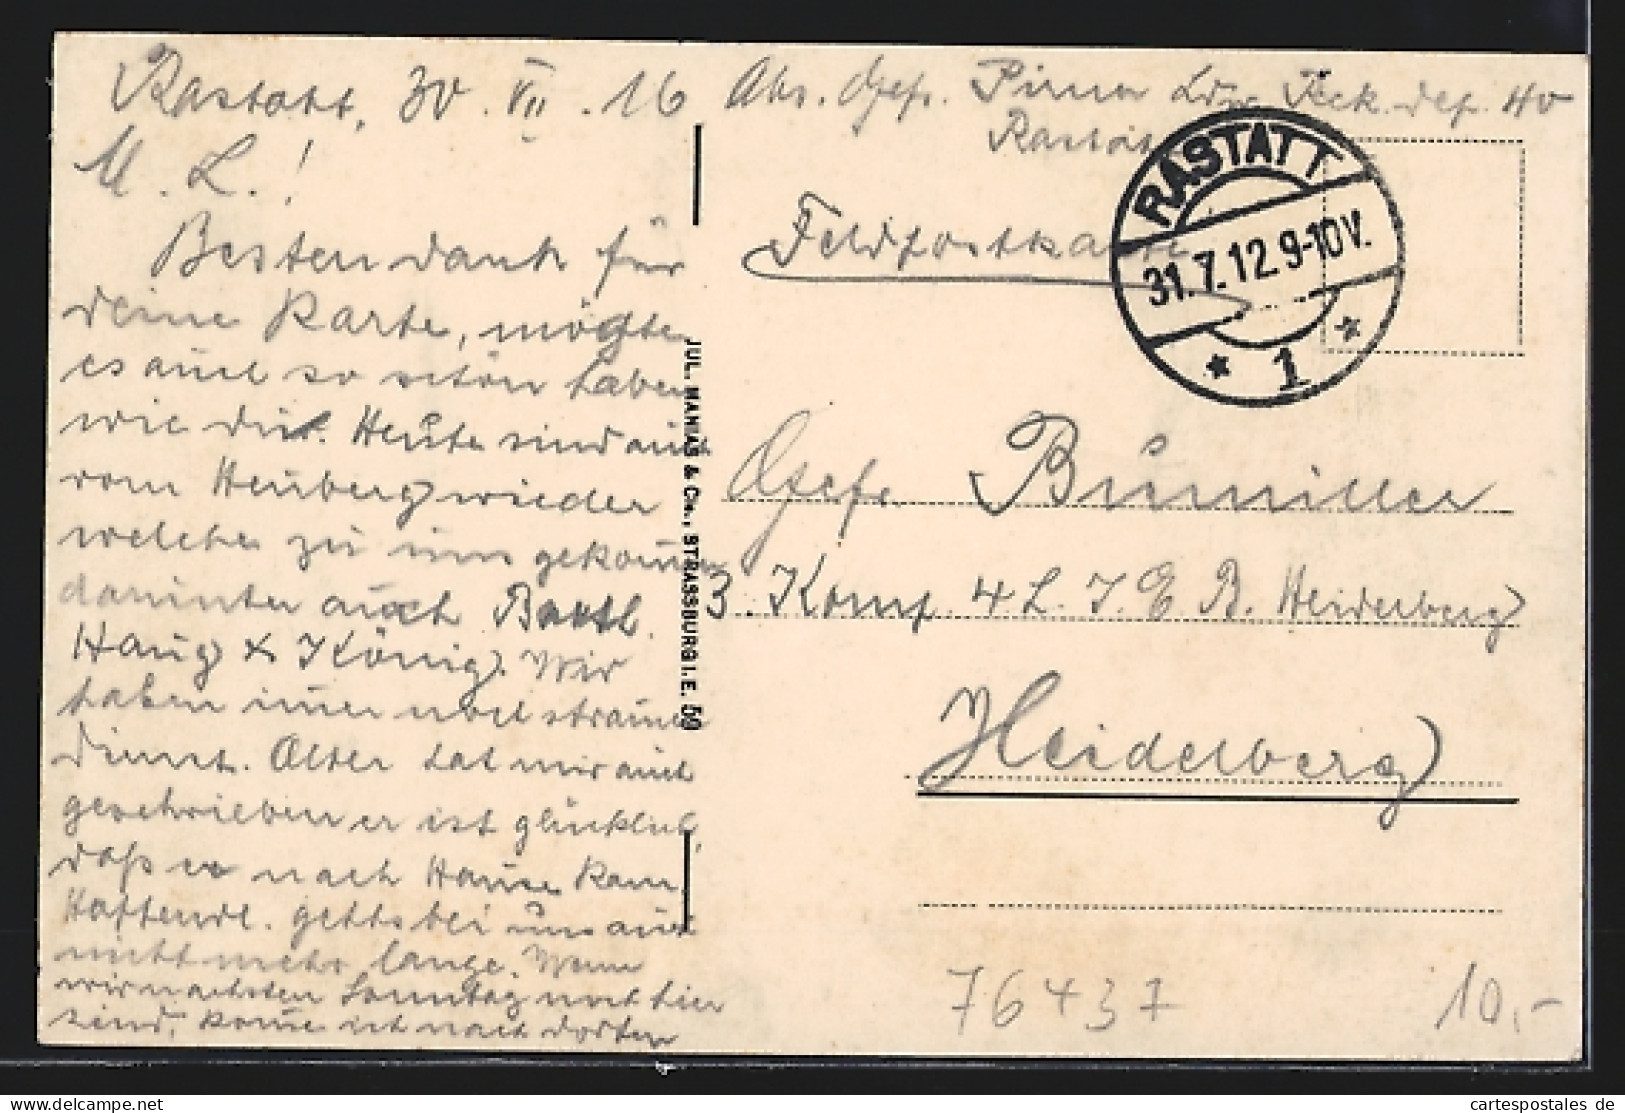 Rastatt, 30. VII. 16
M. L.!
Besten dank für
deine Karte, möchte
es auch so schön haben
wie du. Heute sind auch
vom Heuberg wieder
welche zu uns gekomen
darunter auch Bartl.
Haug & König. Wir
haben imer noch stramen
Dienst. Alter hat mir auch
geschrieben er ist glücklich,
daß er nach Hause kam,
Hoffendl. gehts bei uns auch
nicht mehr lange. Wenn
wir nächsten Sonntag noch hier
sind, kome ich nach dorten
JUL. MANIAS & Cie., STRASSBURG I. E. 59
Abs. Gefr. Pirma Ldw. dep. 40
Rastatt
Feldpostkarte
RASTATT
31.7.12.9-10V.
* 1 *
Gefr. Bumiller
3. Komp. 4 L. I. E. B. Heidelberg
Heidelberg
76437
10,-
www.delcampe.net
cartespostales de